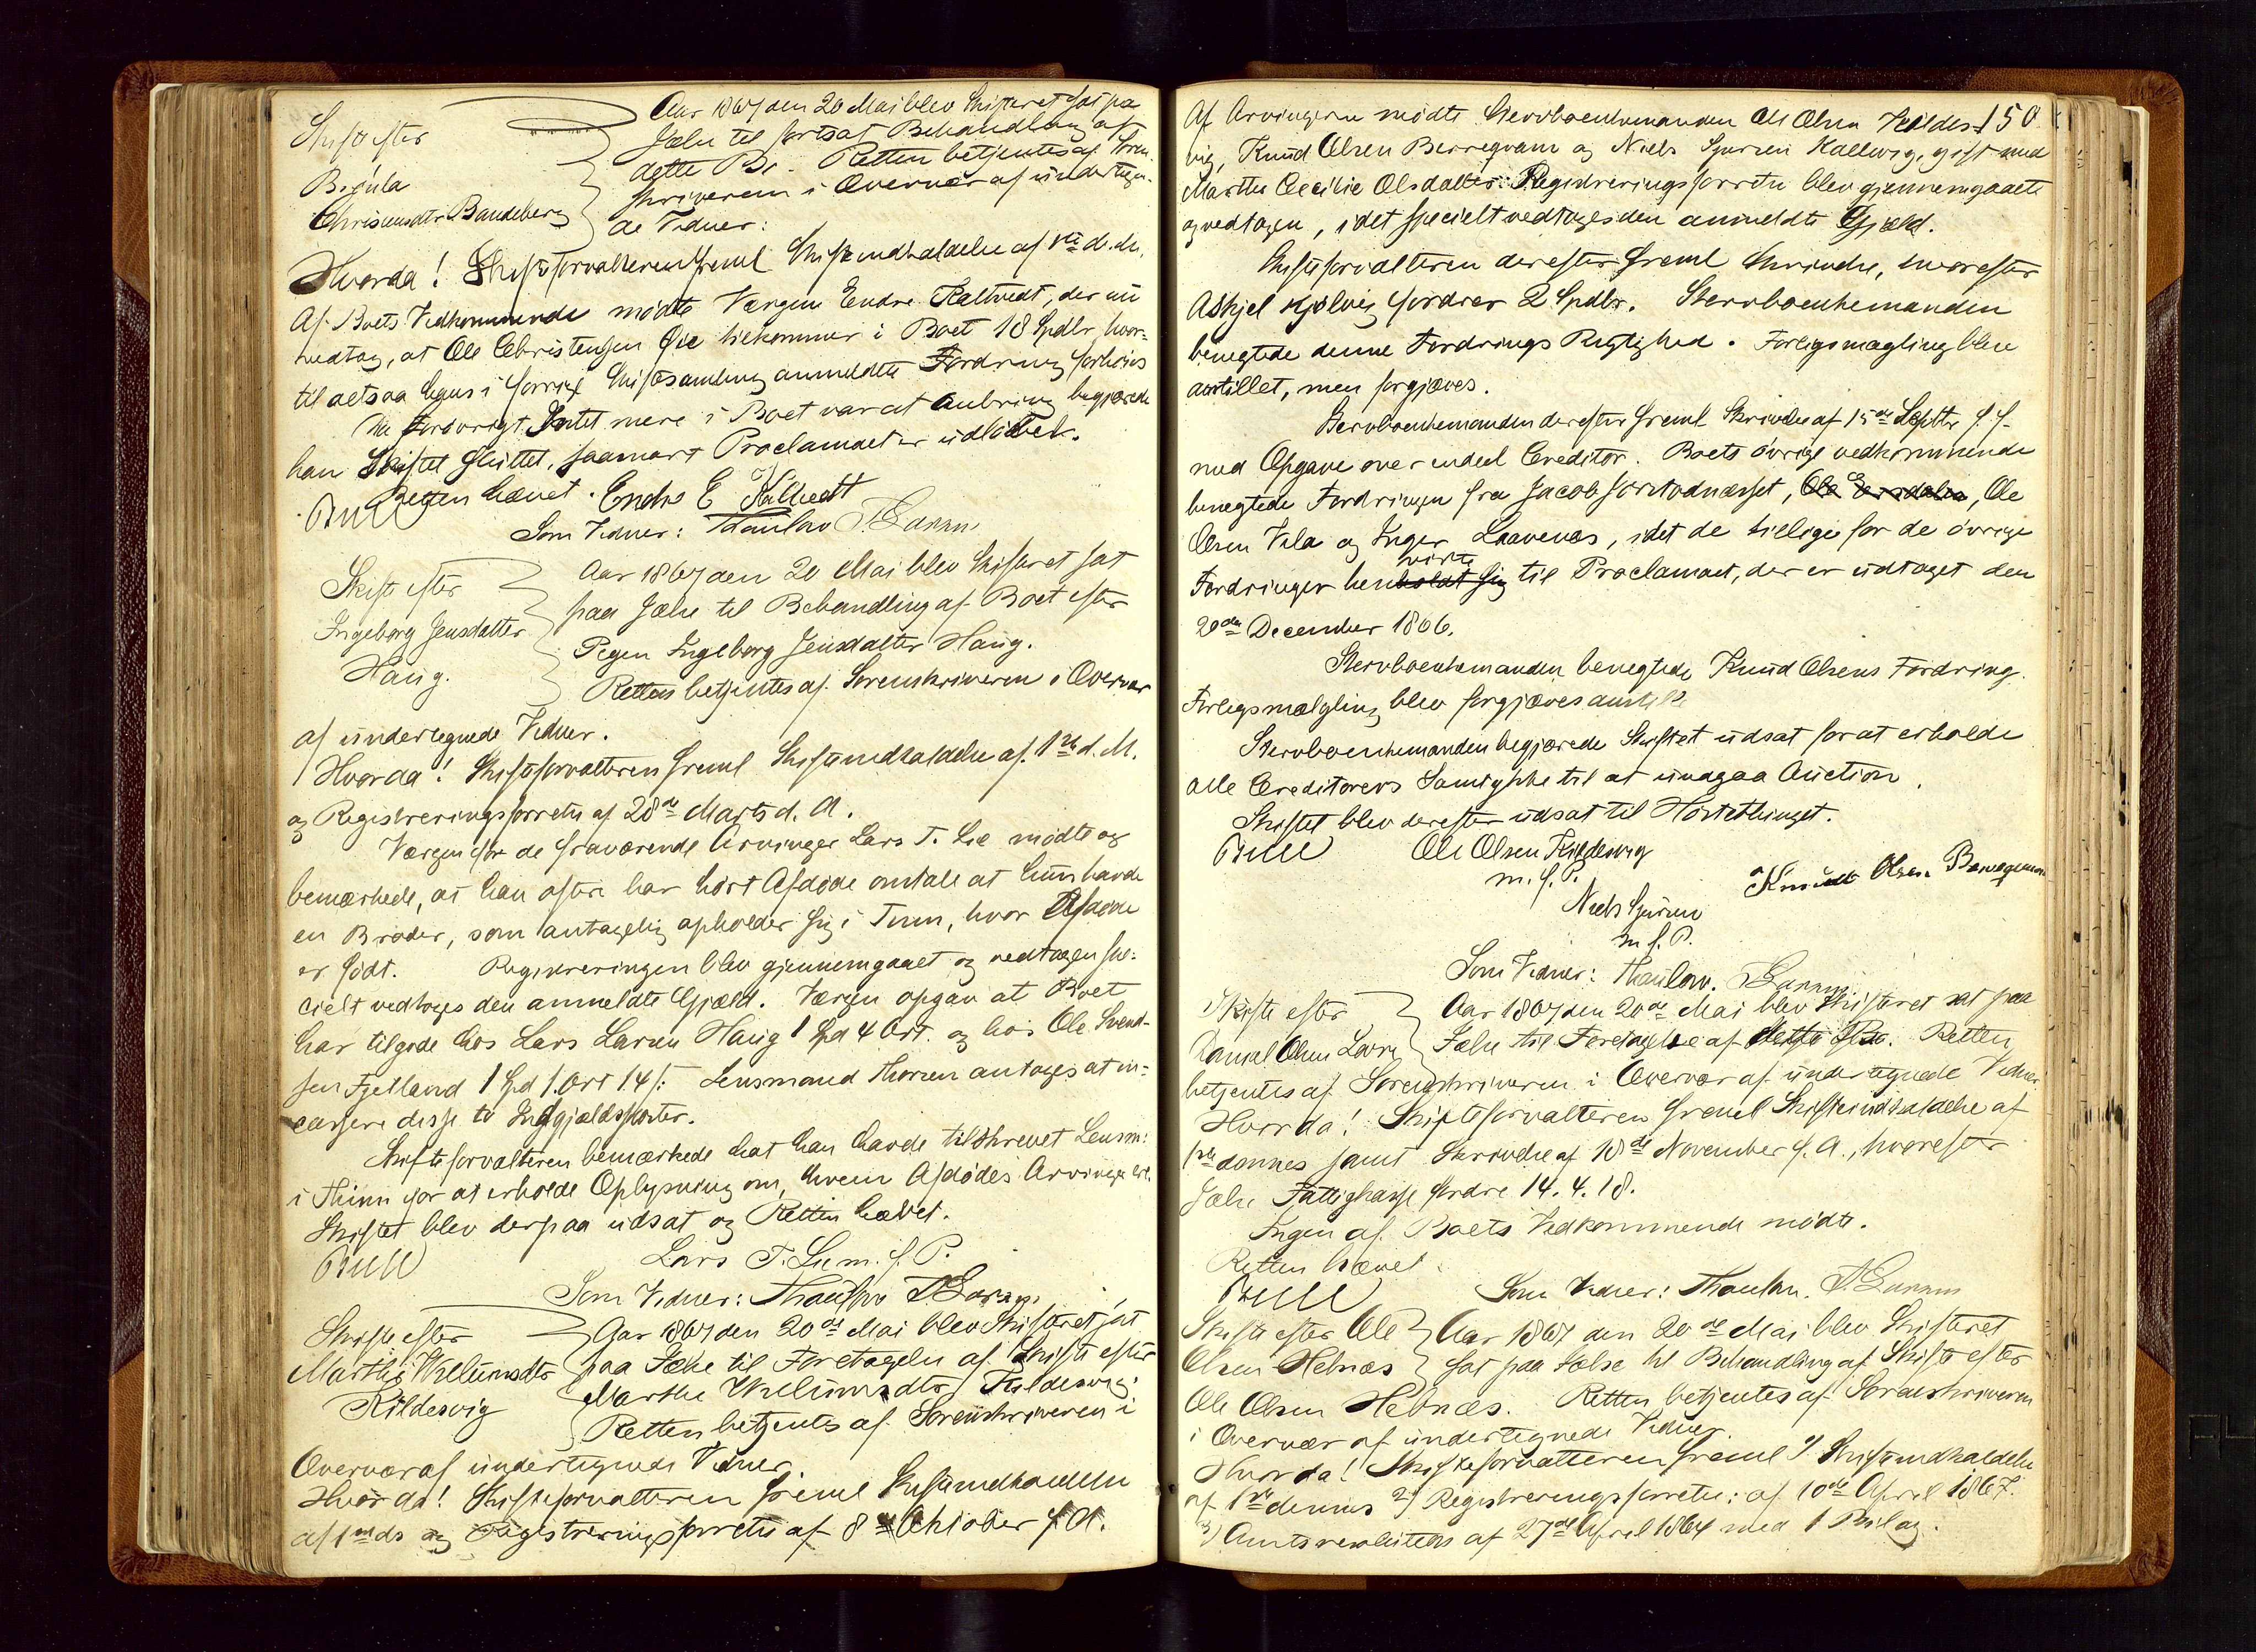 Skifte efter
Brynla
Christensdtr Bandeberg
Aar 1867 den 20 Mai blev Skifteret sat paa
Jælse til fortsat Behandling af
dette Bo. Retten betjentes af Soren-
skriveren i Overvær af undertegne-
de Vidner:
Hvorda! Skifteforvalteren freml Skifteindkaldelse af 1ste d.M.
Af Boets Vedkommende mødte Værgen Endre Kaltvedt, der nu
vedtog, at Ole Christensen Øie bekommer i Boet 18 Spdlr, hvor-
til altsaa hans i forrige Skiftesamling anmeldte Fordring forhøies
Da forøvrigt Intet mere i Boet var at anbringe begjærede
han Skiftet sluttet, saasnart Proclamaet er udløbet.
Retten hævet. Endre E Kaltvedt
Bull
Som Vidner: Thaulow T Larsen
Skifte efter
Ingeborg Jensdatter
Haug.
Aar 1867 den 20 Mai blev Skifteret sat
paa Jælse til Behandling af Boet efter
Pigen Ingeborg Jensdatter Haug.
Retten betjentes af Sorenskriveren i Overvær
af undertegnede Vidner.
Hvorda! Skifteforvalteren freml Skifteindkaldelse af 1ste d. M.
og Registreringsforretn af 28de Marts d. A.
Værgen for de fraværende Arvinger Lars T. Lie mødte og
bemærkede, at han oftere har hørt Afdøde omtale at hun havde
en Broder, som antagelig opholder sig i Tinn, hvor Afdøde
er født. Registreringen blev gjennemgaaet og vedtagen spe-
cielt vedtoges den anmeldte Gjæld. Værgen opgav at Boet
har tilgode hos Lars Larsen Haug 1 Spd 4 Ort. og hos Ole Svend-
sen Fjetland 1 Spd 1 Ort 14 s: Lensmand Thorsen antages at in-
cassere disse to Indgjældsposter.
Skifteforvalteren bemærkede at han havde tilskrevet Lensm:
i Thinn for at erholde Oplysning om, hvem Afdødes Arvinger ere.
Skiftet blev derpaa udsat og Retten hævet.
Bull Lars T. Lie m. f. P.
Som Vidner: Thaulow T Larsen
Skifte efter
Marthe Willumsdtr
Kildesvig
Aar 1867 den 20de Mai blev Skifteret sat
paa Jælse til Foretagelse af Skifte efter
Marthe Willumsdtr Kildesvig.
Retten betjentes af Sorenskriveren i
Overvær af undertegnede Vidner.
Hvorda! Skifteforvalteren freml Skifteindkaldelse
af 1ste ds og Registreringsforretn af 8de Oktober f A.
150
Af Arvingerne mødte Stervboenkemanden Ole Olsen Kildes-
vig, Knud Olsen Berreqvam og Niels Sjursen Kallevig, gift med
Marthe Cecilie Olsdatter: Registreringsforretn blev gjennemgaaet
og vedtagen, idet specielt vedtoges den anmeldte Gjæld.
Skifteforvalteren derefter freml Skrivelse, hvorefter
Askjel Kjølvig fordrer 2 Spdlr. Stervboenkemanden
benegtede denne Fordrings Rigtighed. Forligsmægling blev
anstillet, men forgjæves.
Stervboenkemanden derefter freml Skrivelse af 15de Septbr f. A.
med Opgave over endeel Creditor. Boets øvrige vedkommende
benegtede Fordringen fra Jacob Førstodnæsset, Ole
Olsen Vela og Inger Laavenæs, idet de tillige for de øvrige
viste
Fordringer henholdt sig til Proclamaet, der er udtaget den
20de December 1866.
Stervboenkemanden benegtede Knud Olsens Fordring.
Forligsmægling blev forgjæves anstillet
Stervboenkemanden begjærede Skiftet udsat for at erholde
alle Creditorers Samtykke til at undgaa Auction.
Skiftet blev derefter udsat til Høstethinget.
Bull Ole Olsen Kildesvig
m. f. P.
Knudt Olsen Berreqvam
Niels Sjursen
m. f. P.
Som Vidner: Thaulow. T Larsen
Skifte efter
Daniel Olsen Lovra
Aar 1867 den 20de Mai blev Skifteret sat paa
Jælse til Foretagelse af dette Bo. Retten
betjentes af Sorenskriveren i Overvær af undertegnede Vidner
Hvorda! Skifteforvalteren freml Skifteindkaldelse af
1ste dennes samt Skrivelse af 18de November f. A., hvorefter
Jælse Fattigkasse fordre 14. 4. 18.
Ingen af Boets Vedkommende mødte.
Retten hævet.
Bull Som Vidner: Thaulow. T. Larsen
Skifte efter Ole
Olsen Hebnæs
Aar 1867 den 20de Mai blev Skifteret
sat paa Jælse til Behandling af Skifte efter
Ole Olsen Hebnæs. Retten betjentes af Sorenskriveren
i Overvær af undertegnede Vidner.
Hvorda! Skifteforvalteren freml 1) Skifteindkaldelse
af 1ste dennes 2) Registreringsforretn: af 10de April 1867.
3) Amtsresolution af 27de April 1867 med 1 Bilag.